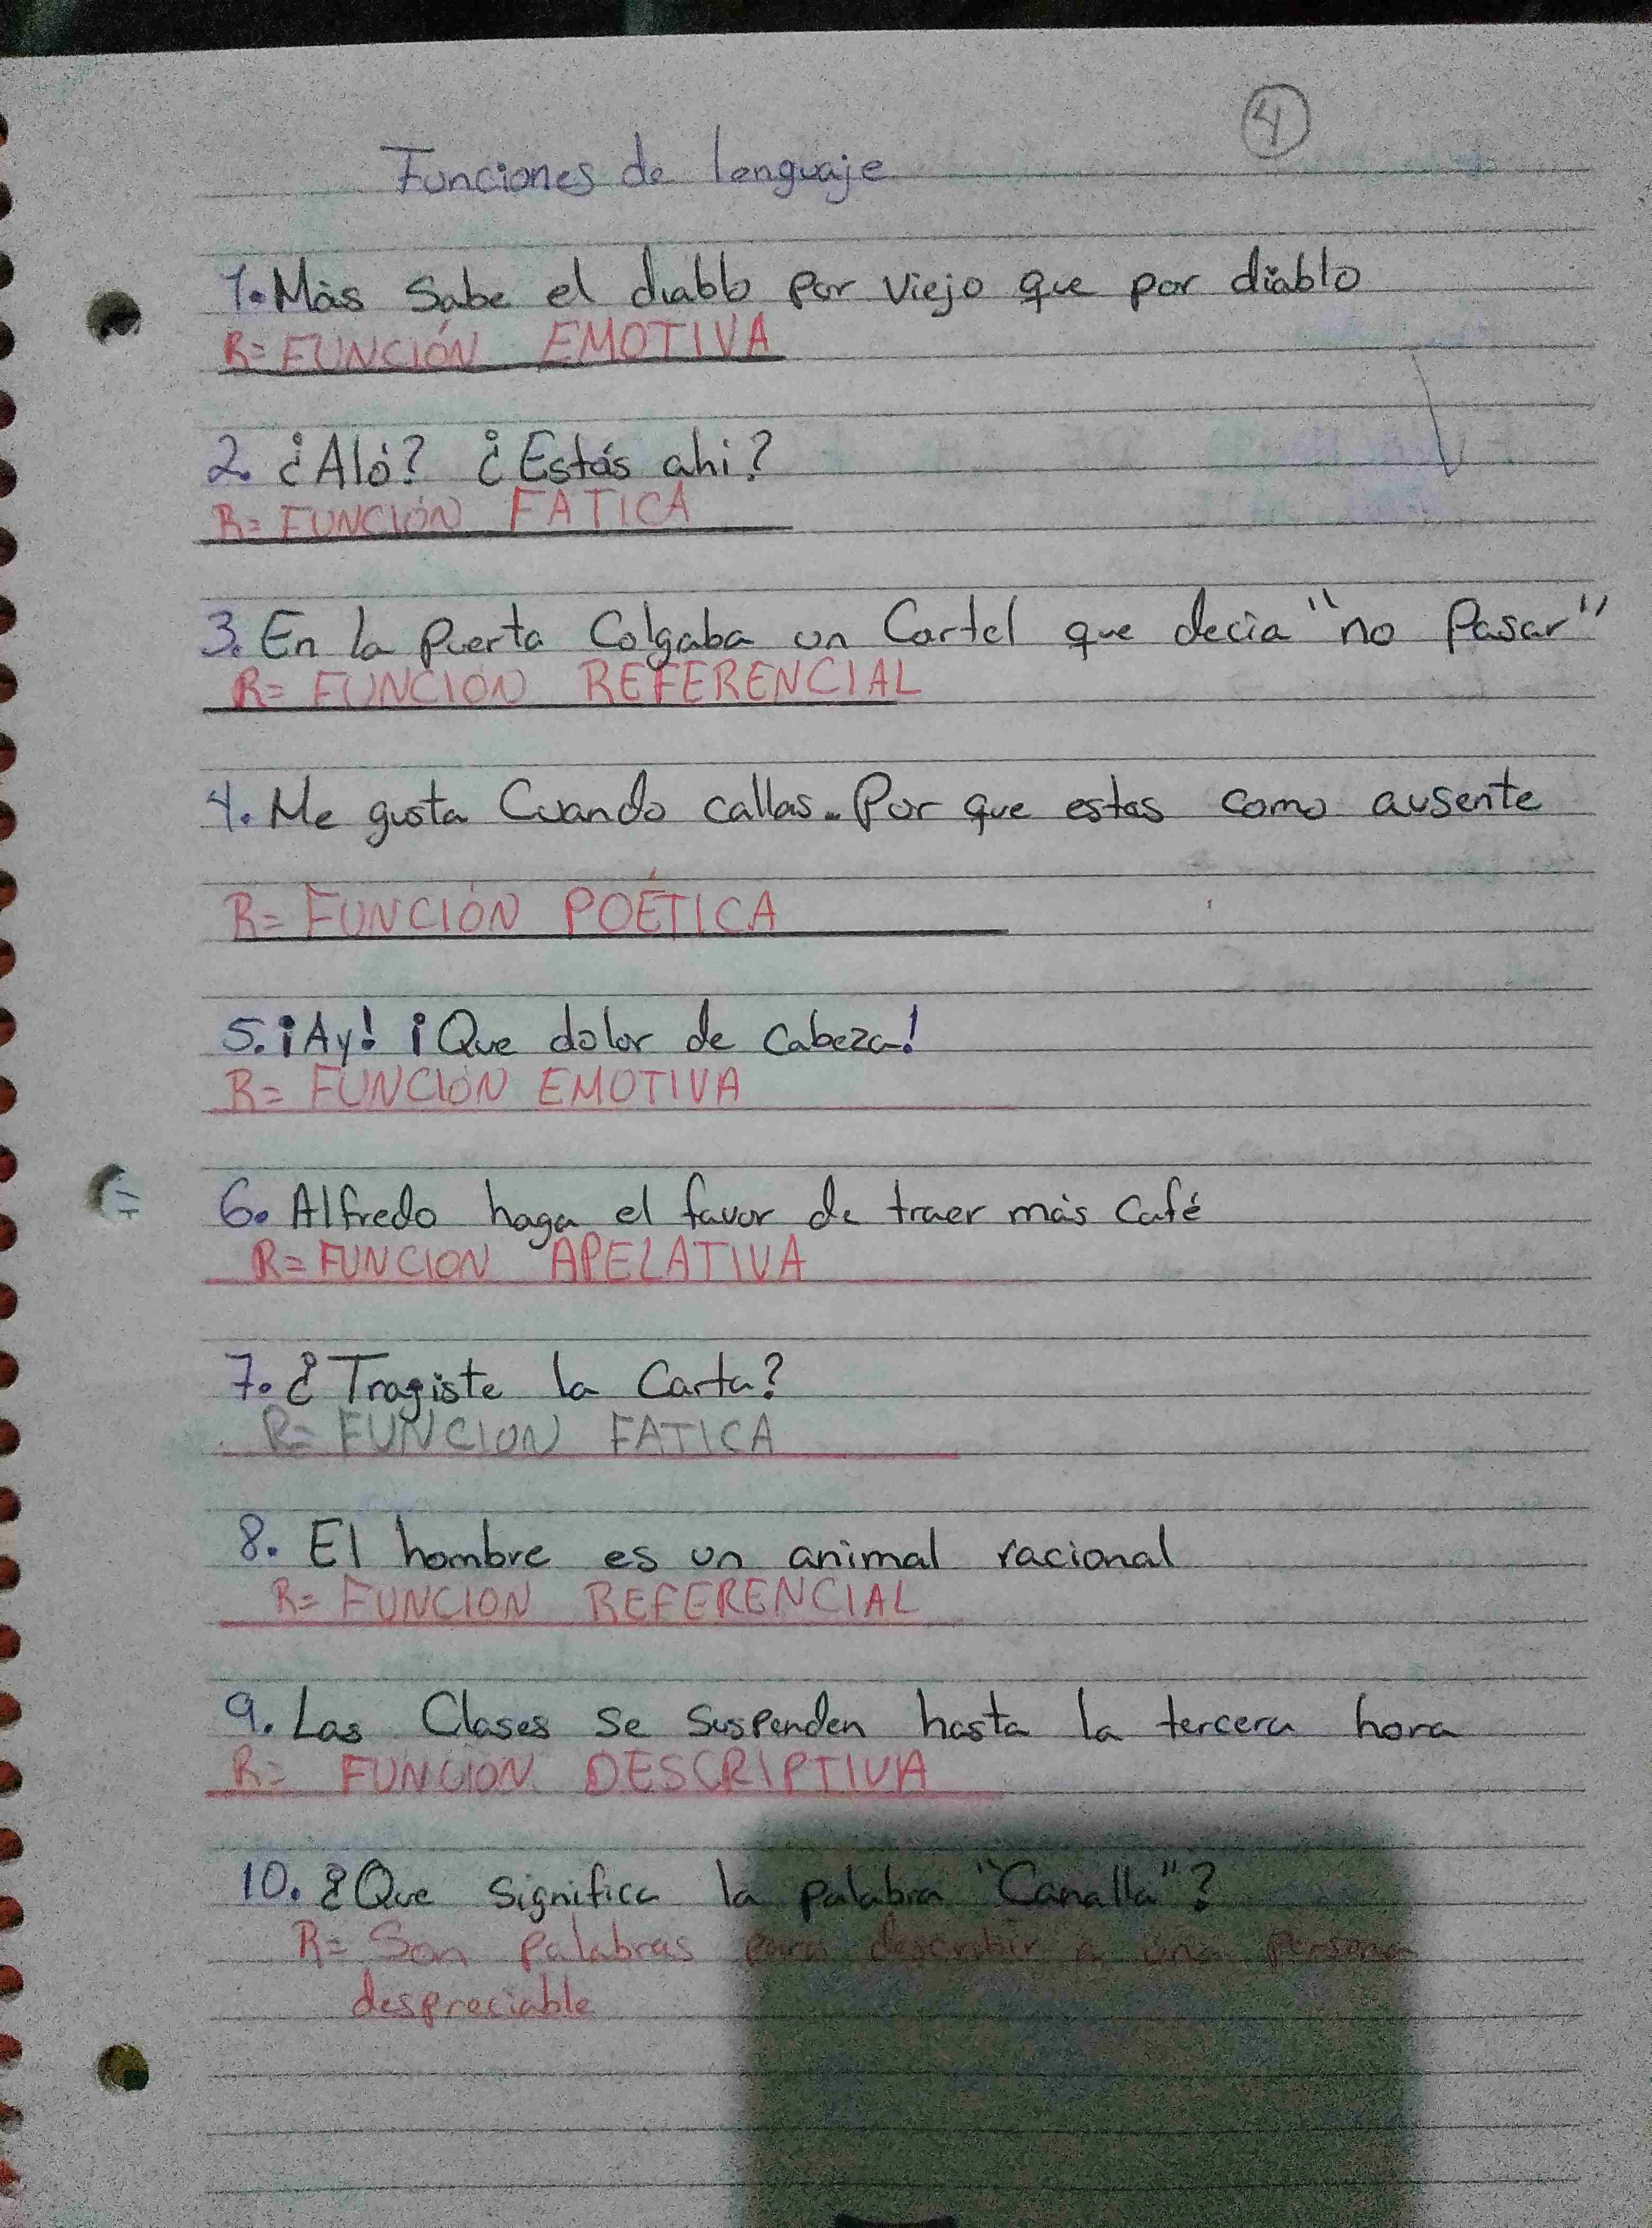 4
Funciones de lenguaje
1. Más Sabe el diablo por viejo que por diablo
R= FUNCIÓN EMOTIVA
2. ¿Aló? ¿Estás ahi?
R= FUNCIÓN FATICA
3. En la puerta Colgaba un Cartel que decia "no Pasar"
R= FUNCIÓN REFERENCIAL
4. Me gusta Cuando callas. Por que estas como ausente
R= FUNCIÓN POÉTICA
5. ¡Ay! ¡Que dolor de cabeza!
R= FUNCIÓN EMOTIVA
6. Alfredo haga el favor de traer más Café
R= FUNCION APELATIVA
7. ¿Tragiste la Carta?
R= FUNCION FATICA
8. El hombre es un animal racional
R= FUNCION REFERENCIAL
9. Las Clases se suspenden hasta la tercera hora
R= FUNCION DESCRIPTIVA
10. ¿Que significa la palabra "Canalla"?
R= Son palabras para describir a una persona
despreciable